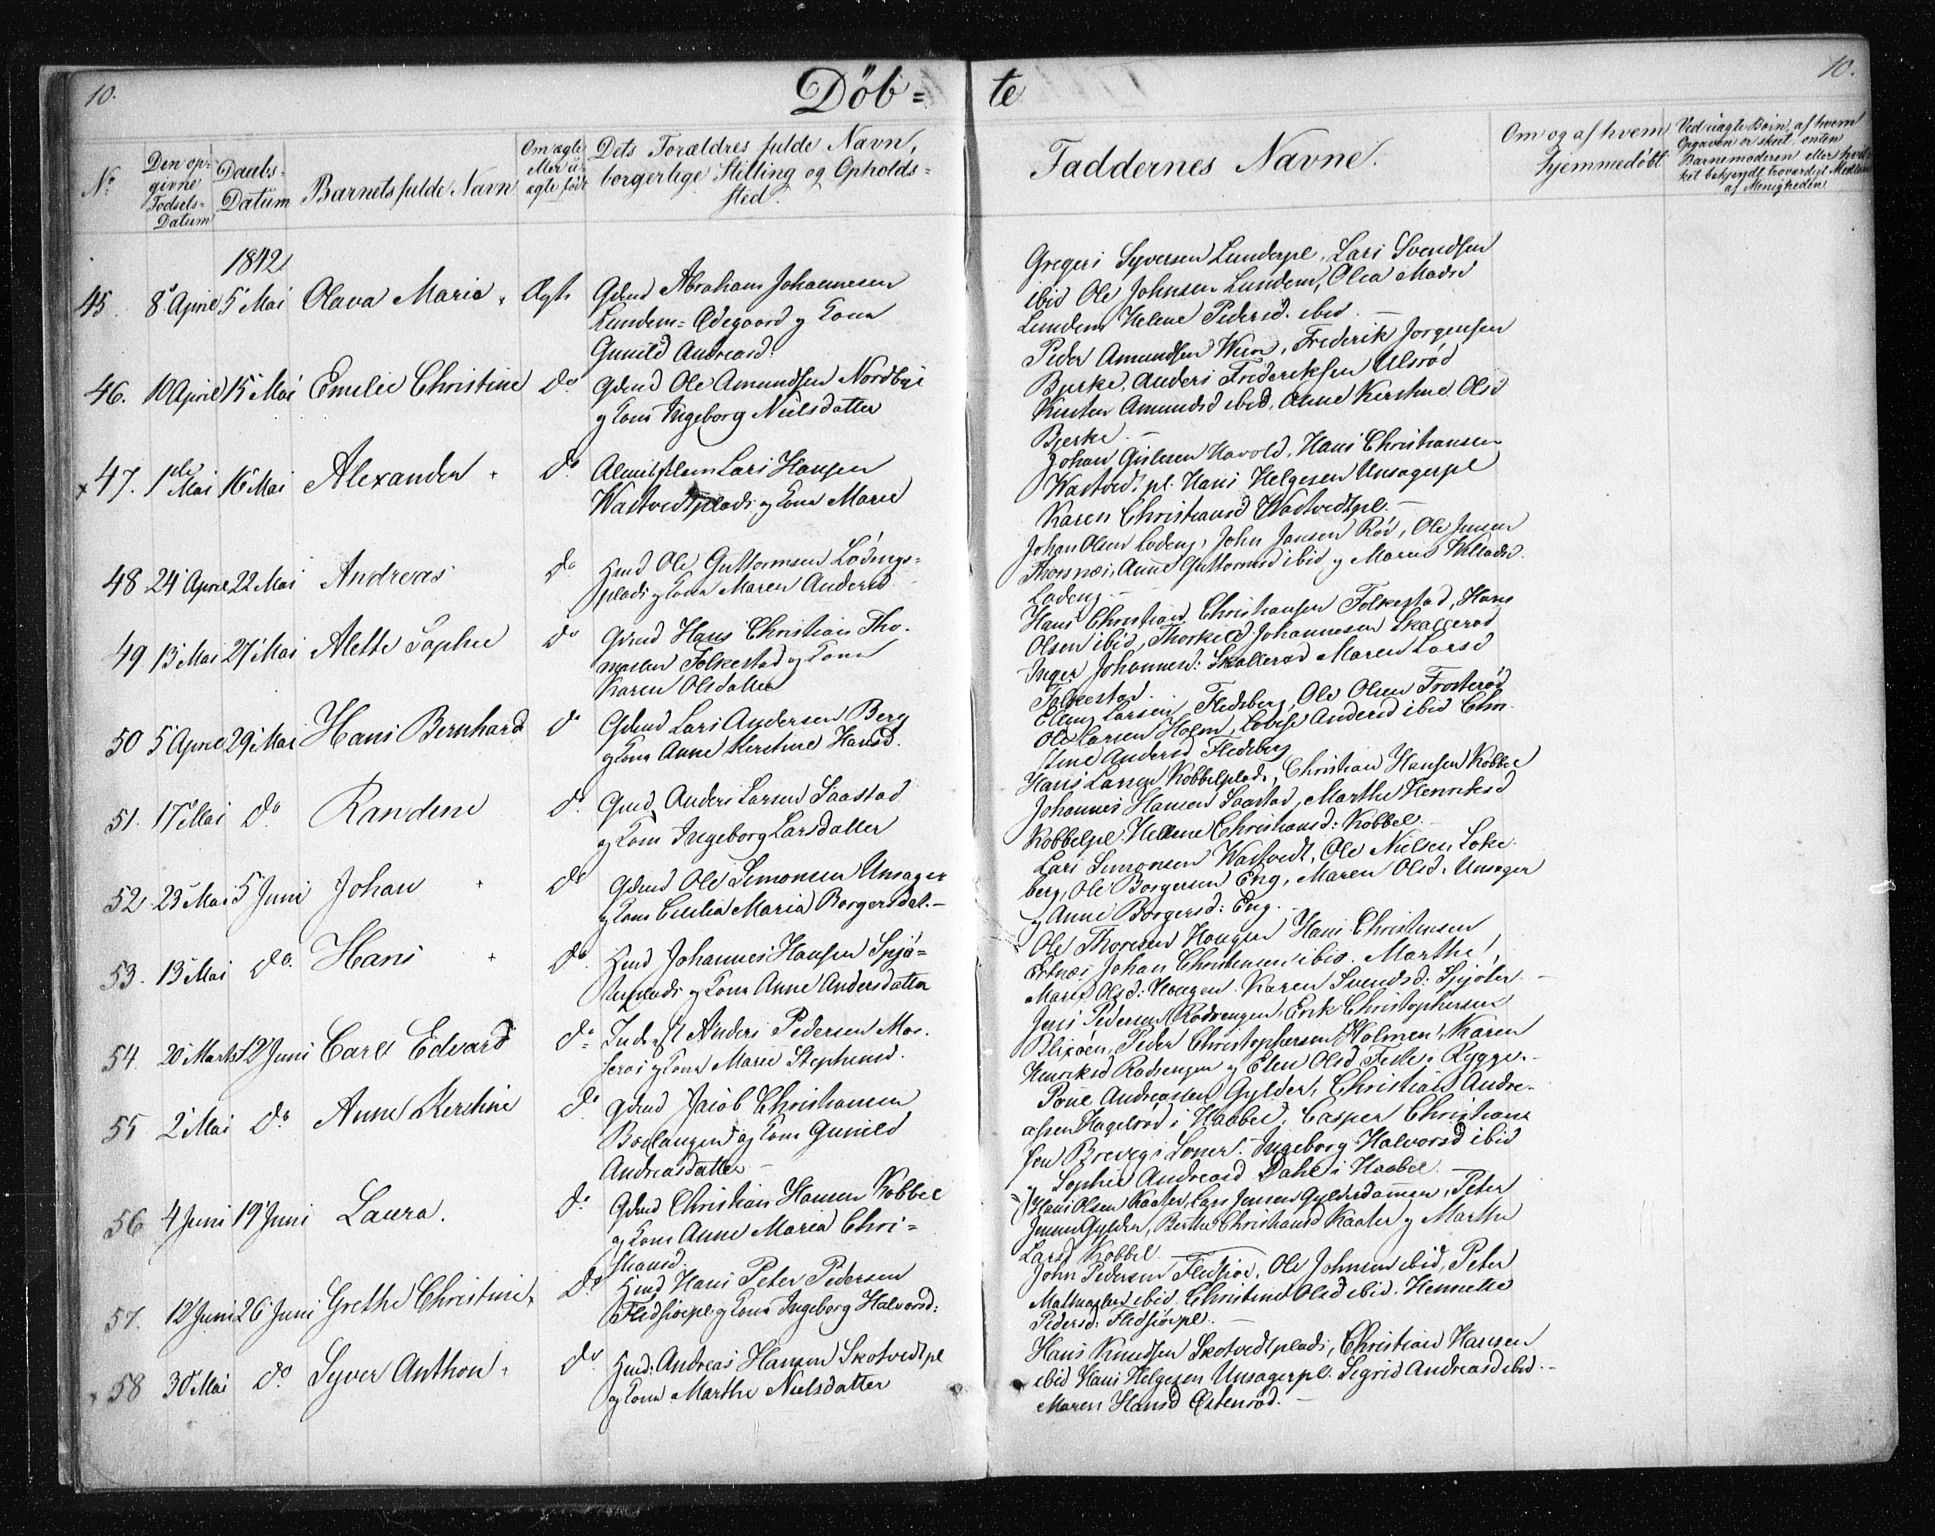 10.
10.
Döb= te
No
Den opgivne Fødsels= Datum
Daabs= Datum
Barnets fulde Navn
Om ægte eller uægte født
Dets Forældres fulde Navn, borgerlige Stilling og Opholds= sted.
Faddernes Navne.
Om og af hvem hjemmedøbt
Ved uægte Børn, af hvem Opgaven er skeet, enten Barnemoderen eller hvilket bekjendt troværdigt Medlem af Menigheden
1842
45. 8 April 5 Mai Olava Maria Ægte Gdmd Abraham Johannesen
Lundem= Ødegaard og Kona
Gunild Andreasd:
Gregers Syversen Lunderpl, Lars Svendsen
ibid Ole Johnsen Lundem, Olea Madsd
Lundem Helene Pedersd. ibid. —
46. 10 April 15 Mai Emilie Christine do Gdmd Ole Amundsen Nordbye
og Kona Ingeborg Nielsdatter
Peder Amundsen Wein, Frederik Jørgensen
Bjerke, Anders Frederiksen Ulsrød
Kirsten Amundsd ibid, Anne Kirstine Olsd
Bjerke. —
x 47. 1ste Mai 16 Mai Alexander do Lars Hansen
Wastvedtplads, og Kona Marie
Johan Havold, Hans Christiansen
Wastvedtpl. Hans Helgesen Unsagerpl
Karen Christiansd Wastvedtpl. —
48 24 April 22 Mai Andreas do Hmd Ole Guttormsen Lødings=
plads og Kona Maren Andersd. —
Johan Olsen Lodeng, John Jansen Rød, Ole Jensen
Thorsnæs, Anne Guttormsd ibid og Maren
Lodeng —
49 13 Mai 27 Mai Alette Sophie do Gdmd Hans Christian Tho-
masen Folkestad og Kona
Karen Olsdatter
Hans Christian Christiansen Folkestad, Hans
Olsen ibid, Thorkild Johannesen Skallerød
Inger Johannesd: Skallerød Maren Larsd
Folkestad.
50 5 April 29 Mai Hans Bernhard do Gdmd Lars Andersen Berg
og Kona Anne Kerstine Hansd.
Larsen Fledsberg, Ole Olsen Frosterød
Ole Larsen Holm, Lovise Andersd ibid Chri-
stine Andersd Fledsberg
51. 17 Mai do Randine do Gmd Anders Larsen Saastad
og Kona Ingeborg Larsdatter
Hans Larsen Kobbelplads, Christian Hansen Kobbel
Johannes Hansen Saastad, Marthe Henriksd
Kobbelpl. Hellene Christiansd: Kobbel. —
52 23 Mai 5 Juni Johan do Gdmd Ole Simonsen Unsager
og Kona Cecilia Maria Borgersdat. —
Lars Simonsen Wastvedt, Ole Nielsen Loke-
berg, Ole Borgersen Eng, Maren Olsd. Unsager
og Anne Borgersd: Eng. —
53. 13 Mai do. Hans do. Hmd Johannes Hansen Spjø-
terplads og Kona Anne Andersdatter
Ole Thoresen Haugen Hans Christensen
Johan Christensen ibid. Marthe
Maria Olsd: Haugen. Karen Svendsd: Spjøter. —
54. 20 Marts 12 Juni Carl Edvard do Inderst Anders Pedersen Mos-
serøs og Kona Marie Stephensd.
Jens Pedersen Rødsengen, Erik Christophersen
Blixøen, Peder Christophersen Holmen, Karen
Henriksd Rødsengen og Elen Olsd Feste i Rygge. —
55 2 Mai do. Anne Kerstine do Gdmd Jacob Christiansen
Borlaugen og Kona Gunild
Andreasdatter —
Poul Andreassen Gylder, Christian Andre-
assen Hagelrød i Haabøl, Casper Christian-
sen Brevig i Soner. Ingeborg Halvorsd ibid
Sophie Andreasd Dahl i Haabøl. —
56 4 Juni 19 Juni Laura. do. Gdmd Christian Hansen Kobbel
og Kona Anne Maria Chri=
stiansd.
Hans Olsen Kaater, Lars Jensen Gylderdammen, Peter
Jensen Gylder, Berthe Christiansd Kaater og Marthe
Larsd Kobbel.
57. 12 Juni 26 Juni Grethe Christine do Hmd Hans Peter Pedersen
Fledsiøepl og Kona Ingeborg Halvorsd:
John Pedersen Fledsiøe, Ole Johnsen ibid, Peter
ibid, Christine Olsd ibid. Hennette
Pedersd: Fledsiøepl. —
58 30 Mai do Syver Anthon do Hmd: Andreas Hansen Skotvedtpl
og Kona Marthe Nielsdatter
Hans Knudsen Skotvedtplads, Christian Hansen
ibid Hans Helgesen Unsagerpl. Sigrid Andreasd ibid. —
Maren Hansd Østenrød. —